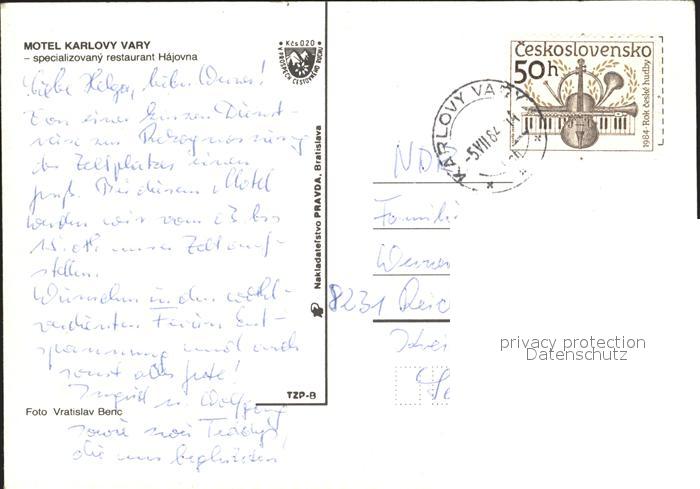 MOTEL KARLOVY VARY
– specializovaný restaurant Hájovna
Kčs 0,20
Liebe Helga, lieber Werner!
Von einer kurzen Dienst-
reise zur Rekognoszierung
des Zeltplatzes einen
Gruß. Bei diesem Motel
werden wir vom 13. bis
unser Zelt auf-
stellen.
Wünschen in den wohl-
verdienten Ferien Ent-
spannung und auch
sonst alles Gute!
Ingrid u. Wolfgang
sowie zwei Teddys,
die uns begleiten!
Foto Vratislav Benc
Nakladateľstvo PRAVDA, Bratislava
TZP-B
Československo
50h
1984·Rok české hudby
KARLOVY VARY
-5.VII.84.-14
Familie
Werner
8231
privacy protection
Datenschutz